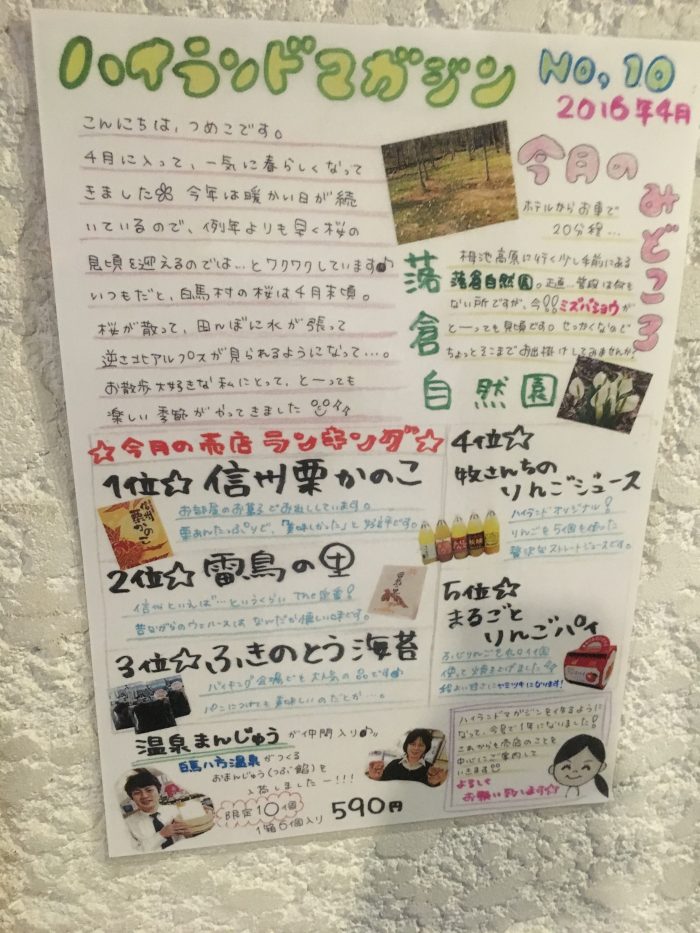 ハイランドマガジン
No,10
2016年4月
こんにちは、つめこです。
4月に入って、一気に春らしくなって
きました 今年は暖かい日が続
いているので、例年よりも早く桜の
見頃を迎えるのでは…とワクワクしています♪
いつもだと、白馬村の桜は4月末頃。
桜が散って、田んぼに水が張って
逆さ北アルプスが見られるようになって…。
お散歩大好きな私にとって、とーっても
楽しい季節がやってきました
今月のみどころ
ホテルからお車で
20分程…
落倉自然園
栂池高原に行く少し手前にある
落倉自然園。正直…普段は何も
ない所ですが、今!!ミズバショウが
とーっても見頃です。せっかくなので
ちょっとそこまでお出掛けしてみませんか?
☆今月の売店ランキング☆
1位☆信州栗かのこ
お部屋のお菓子でお出ししています。
栗あんたっぷりで、「美味しかった」と好評です。
信州
栗かのこ
2位☆雷鳥の里
信州といえば…というくらいThe定番!
昔ながらのウエハースはなんだか懐しい味です。
3位☆ふきのとう海苔
バイキング会場でも大人気の品です♪
パンにつけても美味しいのだとか…。
4位☆
牧さんちの
りんごジュース
ハイランドオリジナル!
りんごを5個も使った
贅沢なストレートジュースです。
5位☆
まるごと
りんごパイ
ふじりんごを丸ごと1個
使って焼き上げました
程よい甘さにヤミツキになります!
温泉まんじゅうが仲間入り♪
白馬八方温泉がつくる
おまんじゅう(つぶ餡)を
入荷しましたー!!!
限定10個
1箱6個入り
590円
ハイランドマガジンを作るように
なって、今号で1年になりました!
これからも売店のことを
中心にご案内して
いきます
よろしく
お願い致します☆